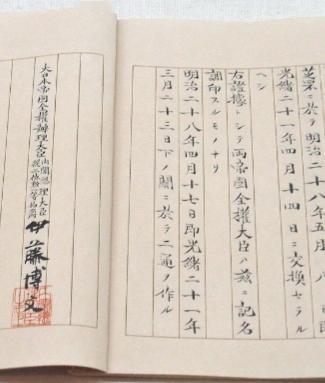 芝罘ニ於テ明治二十八年五月八日即
光緒二十一年四月十四日ニ交換セラル
ヘシ
右證據トシテ兩帝國全權大臣ハ茲ニ記名
調印スルモノナリ
明治二十八年四月十七日即光緒二十一年
三月二十三日下ノ關ニ於テ二通ヲ作ル
大日本帝國全權辦理大臣內閣總理大臣
伊藤博文